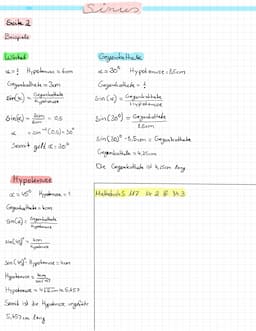 Sinus
Seite 2
Beispiele
Winkel
α = ? Hypotenuse = 6cm
Gegenkathete = 3cm
Sin(α) = Gegenkathete / Hypotenuse
Sin(α) = 3cm / 6cm = 0,5
α = sin⁻¹(0,5) = 30°
Somit gilt α = 30°
Gegenkathete
α = 30° Hypotenuse = 8,5cm
Gegenkathete = ?
Sin(α) = Gegenkathete / Hypotenuse
Sin(30°) = Gegenkathete / 8,5cm
Sin(30)° · 8,5cm = Gegenkathete
Gegenkathete = 4,25cm
Die Gegenkathete ist 4,25cm lang
Hypotenuse
α = 45° Hypotenuse = ?
Gegenkathete = 4cm
Sin(α) = Gegenkathete / Hypotenuse
Sin(45)° = 4cm / Hypotenuse
Sin(45)° · Hypotenuse = 4cm
Hypotenuse = 4cm / Sin(45)
Hypotenuse = 4√2cm ≈ 5,657
Somit ist die Hypotenuse ungefähr
5,657cm lang
S 117 Nr 2 & Nr 3